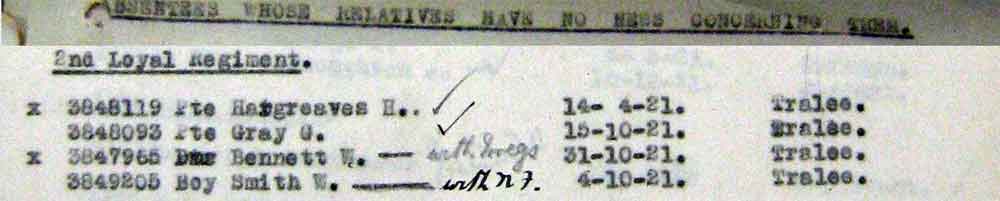 ABSENTEES WHOSE RELATIVES HAVE NO NEWS CONCERNING THEM.
2nd Loyal Regiment.
x 3848119 Pte Hargreaves H.. ✓ 14- 4-21. Tralee.
3848093 Pte Gray G. ✓ 15-10-21. Tralee.
x 3847965 Bennett W. — with 31-10-21. Tralee.
3849205 Boy Smith W. — with N F. 4-10-21. Tralee.